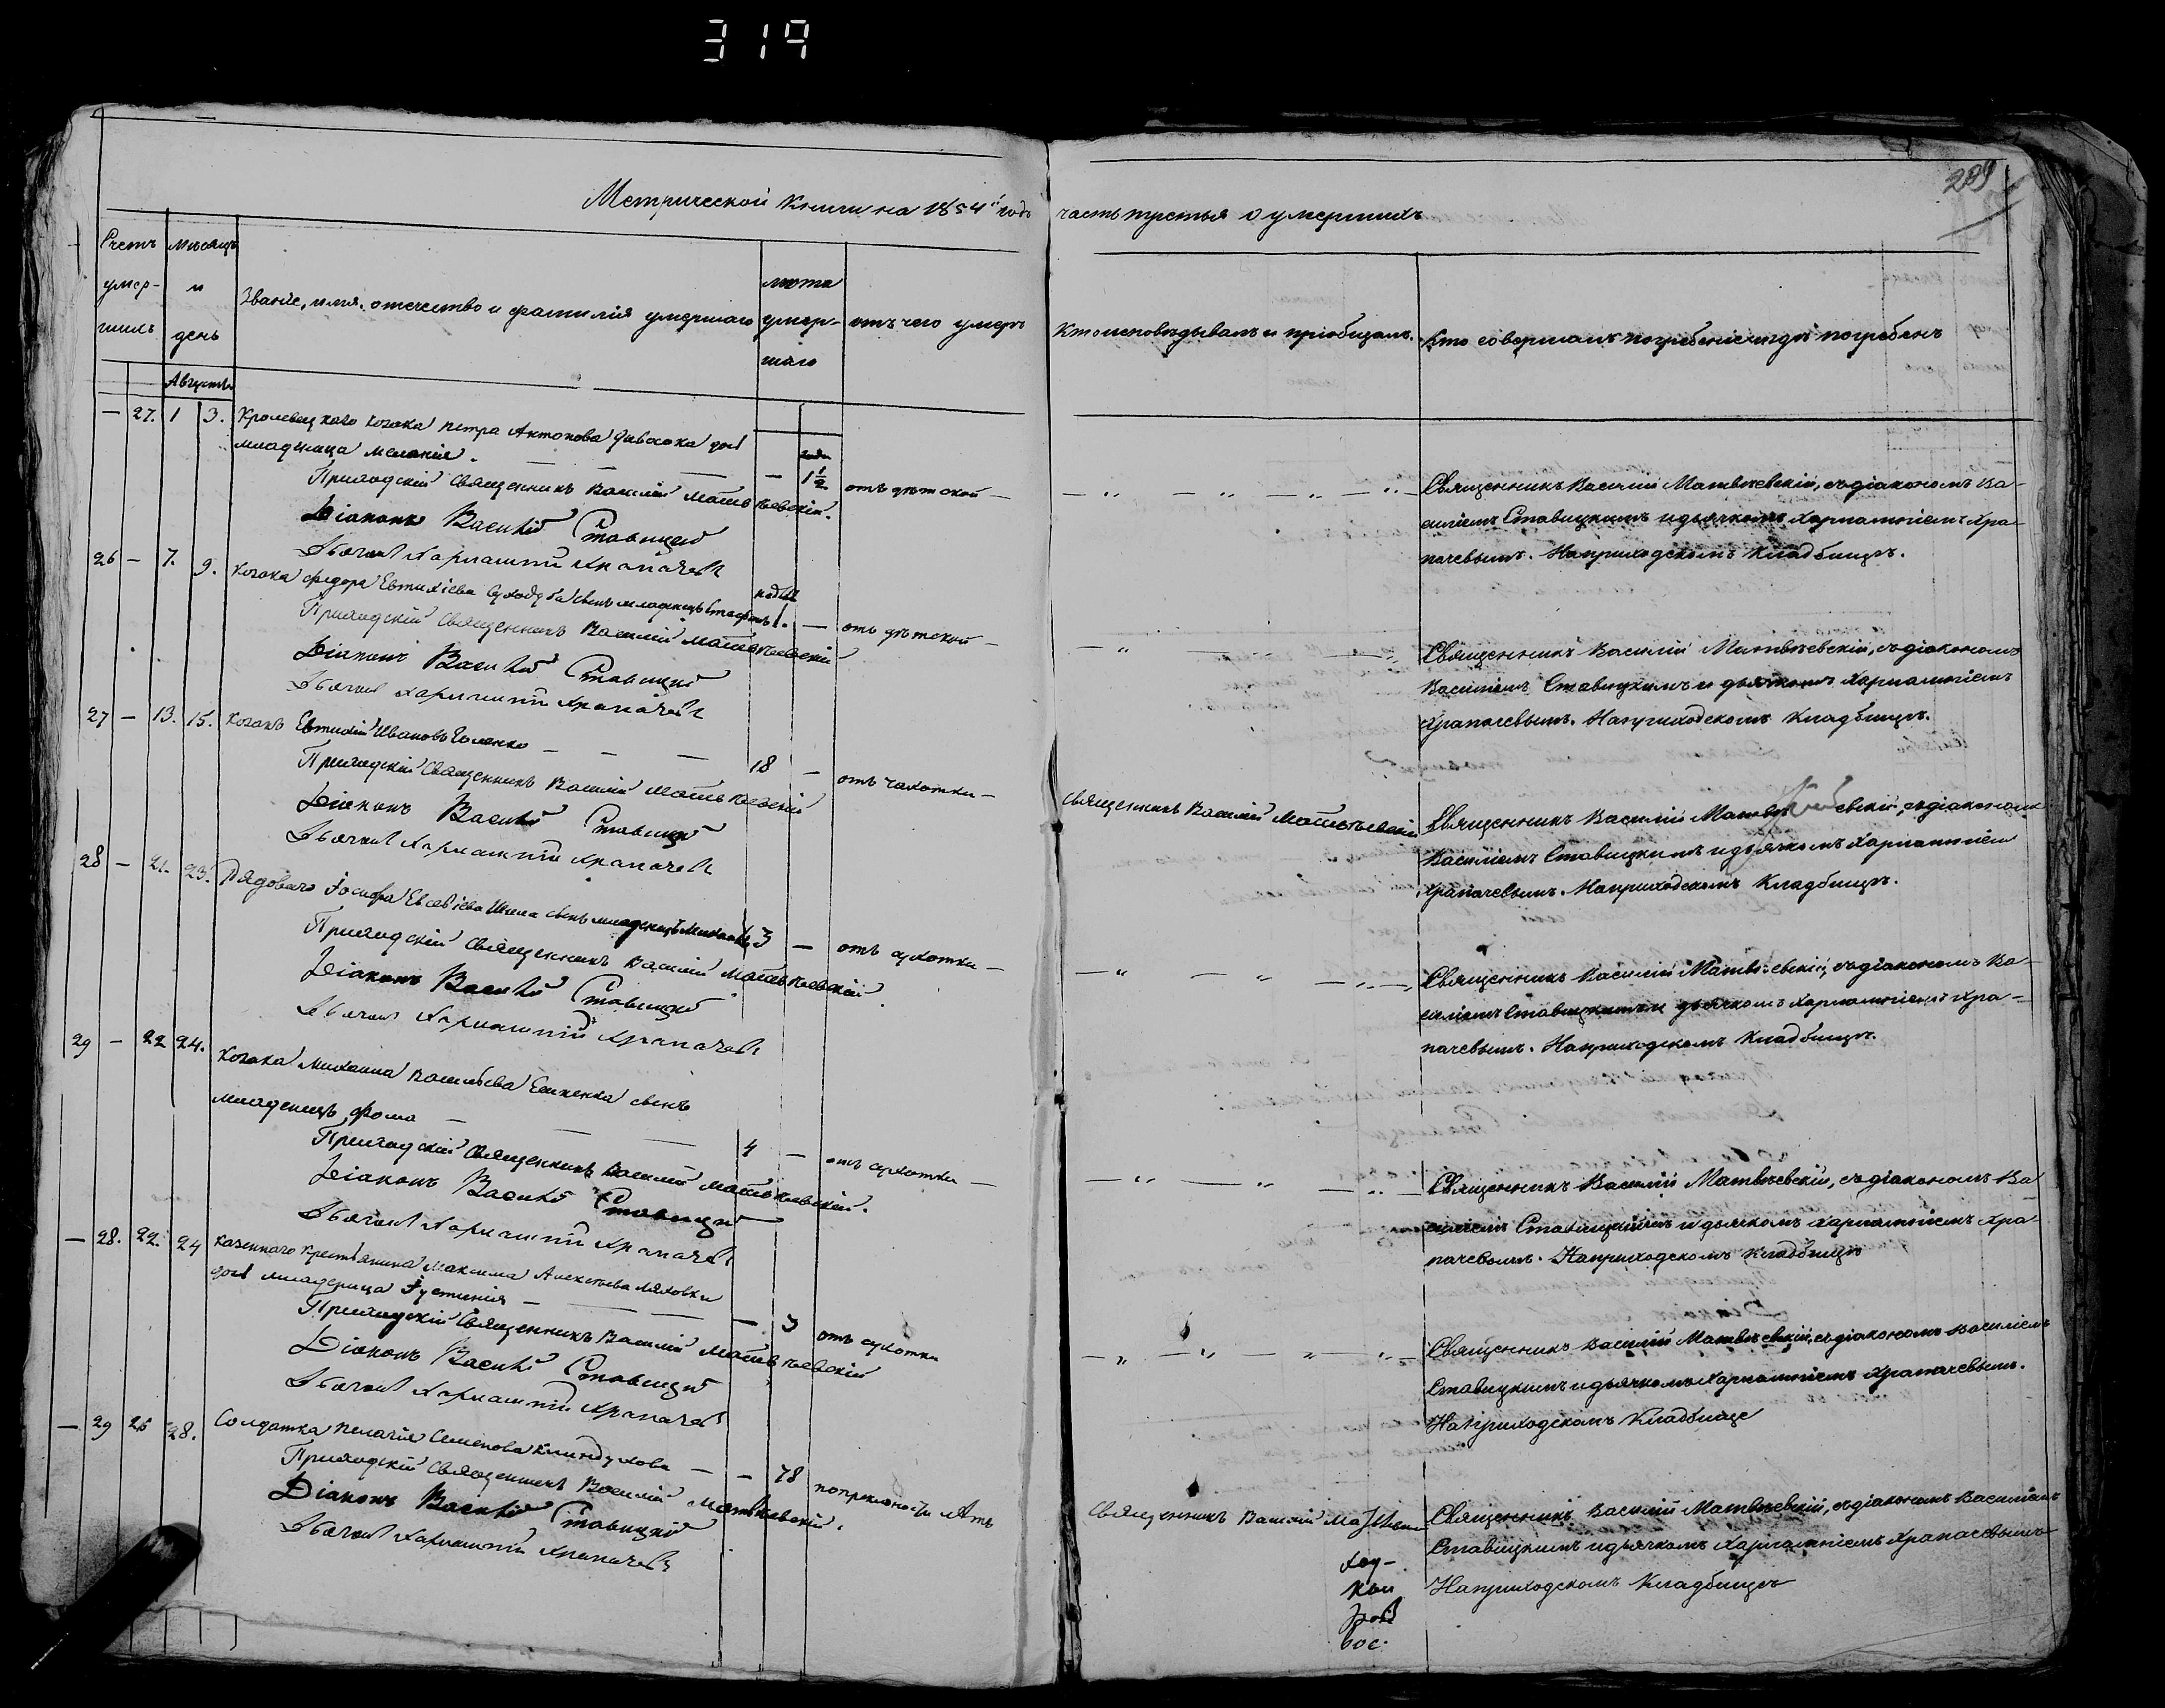 319
289
Метрической книги на 1854й годъ часть третья о умершихъ
Счетъ умер-шихъ
Мѣсяцъ и день
Званіе, имя, отечество и фамилія умершаго
лѣта умер-шаго
отъ чего умеръ
Кто исповѣдывалъ и пріобщалъ.
Кто совершалъ погребеніе и гдѣ погребенъ
Августъ
— 27. 1 3. Кролевецкаго козака Петра Антонова дочь
младеница Меланія. — — — — года 1½ отъ дѣтской —
Приходскій Священникъ Василій Матвѣевскій.
Діаконъ Василій Ставицкій
Дьячокъ Харлампій Храпачев
— „ — „ — „ — „ —
Священникъ Василій Матвѣевскій, съ діакономъ Ва-
силіемъ Ставицкимъ и дьячкомъ Харлампіемъ Хра-
пачевымъ. На приходскомъ кладбищѣ.
26 — 7. 9. Козака Федора Евтихіева сынъ младенецъ Стефанъ 1. — отъ дѣтской —
Приходскій Священникъ Василій Матвѣевскій
Діаконъ Василій Ставицкій
Дьячокъ Харлампій Храпачев
— „ — „ — „ —
Священникъ Василій Матвѣевскій, съ діакономъ
Василіемъ Ставицкимъ и дьячкомъ Харлампіемъ
Храпачевымъ. На приходскомъ кладбищѣ.
27 — 13. 15. Козакъ Евтихій Ивановъ — — — 18 — отъ чахотки —
Приходскій Священникъ Василій Матвѣевскій
Діаконъ Василій Ставицкій
Дьячокъ Харлампій Храпачев
Священникъ Василій Матвѣевскій
Священникъ Василій Матвѣевскій, съ діакономъ
Василіемъ Ставицкимъ и дьячкомъ Харлампіем
Храпачевымъ. На приходскомъ кладбищѣ.
28 — 21. 23. Рядоваго Іосифа Евсевіева Шила сынъ младенецъ Михаилъ 3 — отъ сухотки —
Приходскій Священникъ Василій Матвѣевскій.
Діаконъ Василій Ставицкій
Дьячокъ Харлампій Храпачев
— „ — „ — „ —
Священникъ Василій Матвѣевскій, съ діакономъ Ва-
силіемъ Ставицкимъ и дьячкомъ Харлампіемъ Хра-
пачевымъ. На приходскомъ кладбищѣ.
29 — 22 24. Козака Михаила Васильева сынъ
младенецъ Фома — — — 4 — отъ сухотки —
Приходскій Священникъ Василій Матвѣевскій.
Діаконъ Василій Ставицкій
Дьячокъ Харлампій Храпачев
— „ — „ — „ —
Священникъ Василій Матвѣевскій, съ діакономъ Ва
силіемъ Ставицкимъ и дьячкомъ Харлампіемъ Хра-
пачевымъ. На приходскомъ кладбищѣ
— 28. 22. 24 Казеннаго крестьянина Максима Алексѣева Ляховки
дочь младеница Іустинія — — — — 3 отъ сухотки
Приходскій Священникъ Василій Матвѣевскій
Діаконъ Василій Ставицкій
Дьячокъ Харлампій Храпачев
— „ — „ — „ — „ —
Священникъ Василій Матвѣевскій, съ діакономъ Василіемъ
Ставицкимъ и дьячкомъ Харлампіемъ Храпачевымъ.
На приходскомъ кладбище
— 29 25 28. Солдатка Пелагія Семенова — — 78 по преклоности лѣтъ
Приходскій Священникъ Василій Матвѣевскій.
Діаконъ Василій Ставицкій
Дьячокъ Харлампій Храпачев
Священникъ Василій
Священникъ Василій Матвѣевскій, съ діакономъ Василіемъ
Ставицкимъ и дьячкомъ Харлампіемъ Храпачевымъ
На приходскомъ кладбищѣ